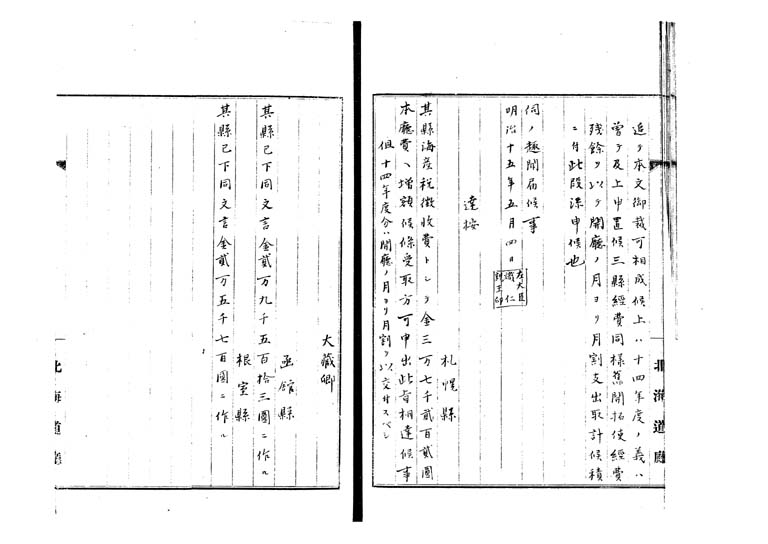 追テ本文御裁可相成候上ハ十四年度ノ義ハ
曽テ及上申置候三縣經費同様舊開拓使經費
残餘ヲ以テ開廳ノ月ヨリ月割支出取計候積
ニ付此段添申候也
伺ノ趣聞届候事
明治十五年五月四日
左大臣
熾仁
親王印
達按
札幌縣
其縣海産税徴收費トシテ金三万七千貳百貳圓
本廳費ヘ増額候條受取方可申出此旨相達候事
但十四年度分ハ開廳ノ月ヨリ月割ヲ以交付スベシ
北海道廳
大藏卿
函館縣
其縣已下同文言金貳万九千五百拾三圓ニ作ル
根室縣
其縣已下同文言金貳万五千七百圓ニ作ル
北海道廳